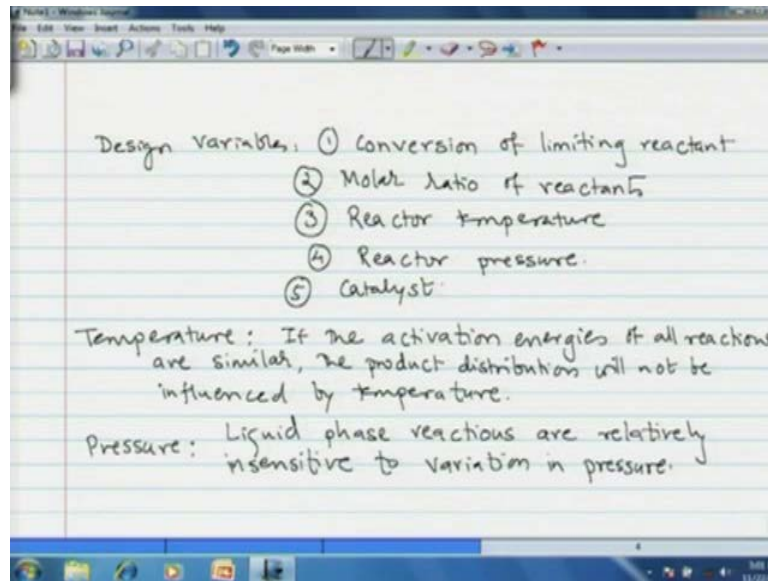 Note1 - Windows Journal
File Edit View Insert Actions Tools Help
Page Width
Design variables: ① Conversion of limiting reactant
② Molar ratio of reactants
③ Reactor temperature
④ Reactor pressure.
⑤ Catalyst.
Temperature: If the activation energies of all reactions
are similar, the product distribution will not be
influenced by temperature.
Pressure: Liquid phase reactions are relatively
insensitive to variation in pressure.
4